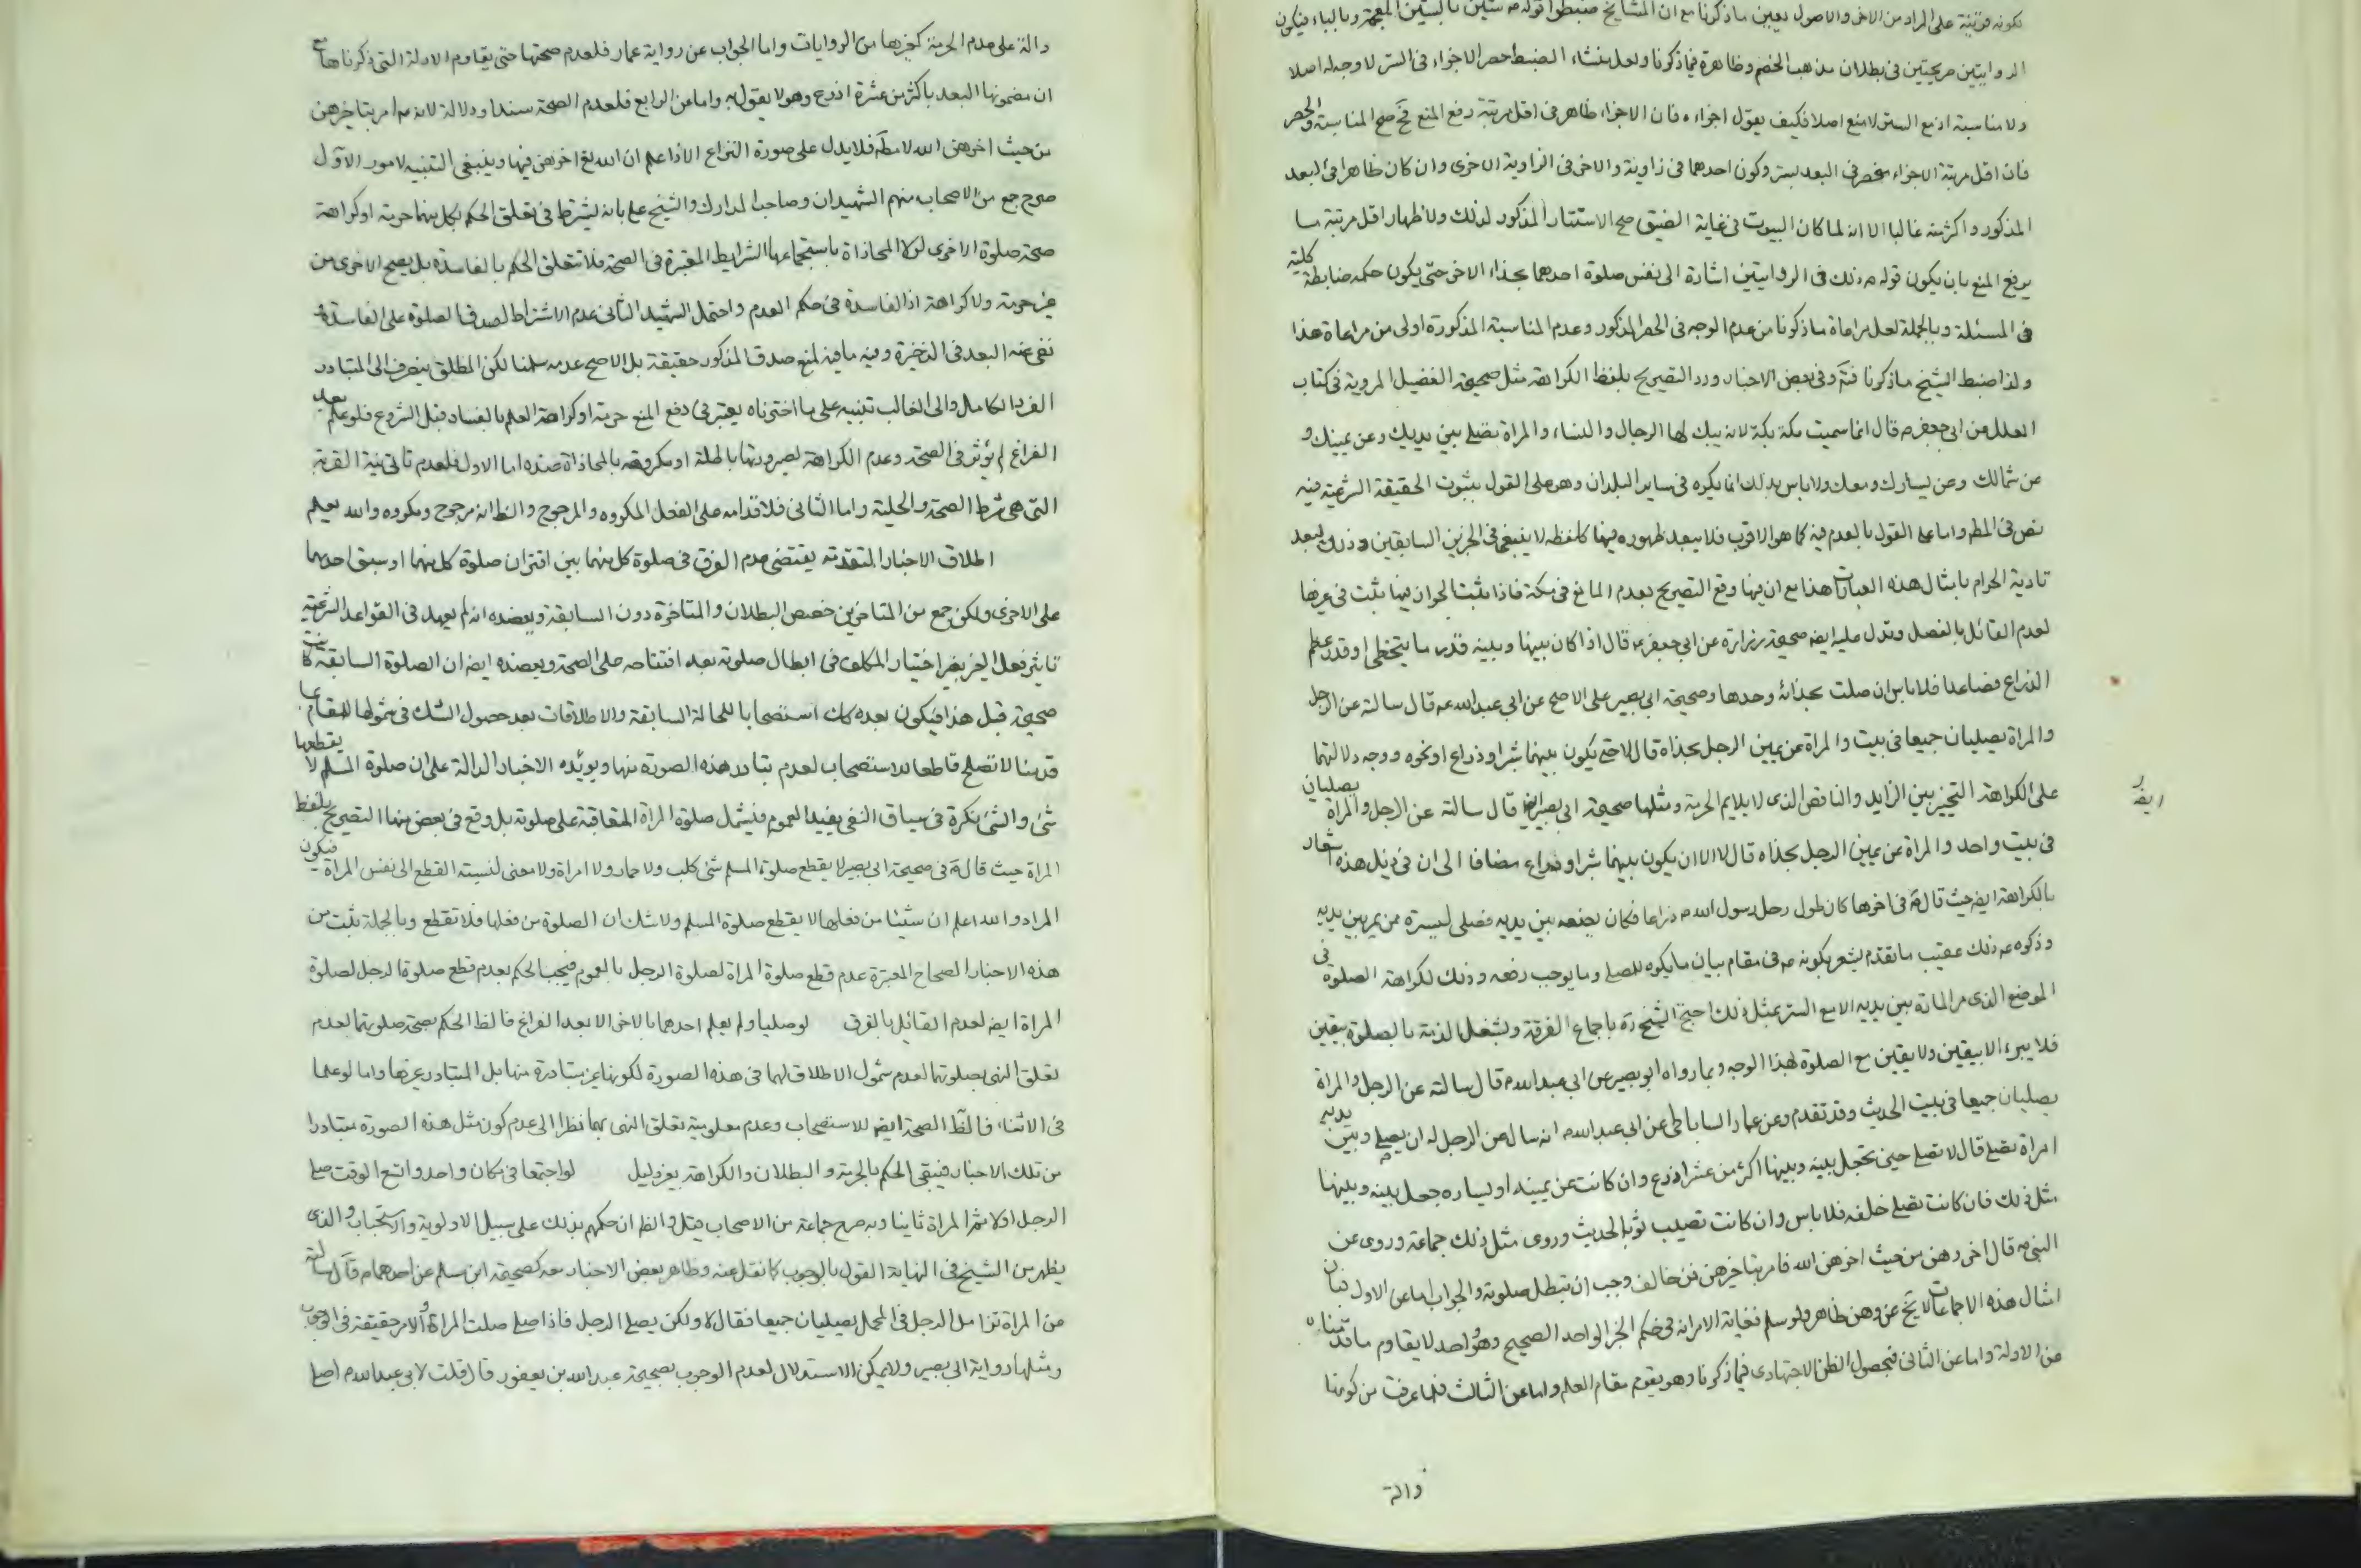 كونه قرينة على المراد من الاخر والاصول يعين ما ذكرنا مع ان المشايخ ضبطوا قوله م ستين بالسين المعجمة وبالباء فيكون
الروايتين صريحتين في بطلان مذهب الخصم وظاهرة فيما ذكرنا ولعل منشاء الضبط حصر الاجزاء في الستر لا وجه له اصلا
ولا مناسبة اذ مع الستر لا منع اصلا فكيف يقول اجزاءه فان الاجزاء ظاهر في اقل مرتبة رفع المنع فح صح المناسبة والحصر
فان اقل مرتبة الاجزاء منحصر في البعد بستر وكون احدهما في زاوية والاخر في الزاوية الاخرى وان كان ظاهرا في البعد
المذكور واكثر منه غالبا الا انه لما كان البيوت في غاية الضيق صح الاستتار المذكور لذلك ولاظهار اقل مرتبة ما
يرفع المنع بان يكون قوله م ذلك في الروايتين اشارة الى نفس صلوة احدهما بحذاء الاخر حتى يكون حكمه ضابطة كلية
في المسئلة وبالجملة لعل مراعاة ما ذكرنا من عدم الوجه في الحصر المذكور وعدم المناسبة المذكورة اولى من مراعاة هذا
ولذا ضبط الشيخ ما ذكرنا فتم وفي بعض الاخبار ورد التصريح بلفظ الكراهة مثل صحيحة الفضيل المروية في كتاب
العلل عن ابي جعفر م قال انما سميت مكة بكة لانه يبك لها الرجال والنساء والمراة تصلي بين يديك وعن يمينك و
عن شمالك وعن يسارك ومعك ولا باس بذلك انما يكره في ساير البلدان وهو على القول بثبوت الحقيقة الشرعية فيه
نص في المط واما على القول بالعدم فيه كما هو الاقرب فلا يبعد ظهوره فيها كلفظه لا ينبغي في الخبرين السابقين وذلك لبعد
تادية الحرام بامثال هذه العبارات هذا مع ان فيها وقع التصريح بعدم المانع في مكة فاذا ثبت الجواز فيها ثبت في غيرها
لعدم القائل بالفصل وتدل عليه ايضا صحيحة زرارة عن ابي جعفر م قال اذا كان بينها وبينه قدر ما يتخطى او قدر عظم
الذراع فصاعدا فلا باس ان صلت بحذائه وحدها وصحيحة ابي بصير على الاصح عن ابي عبد الله م قال سالته عن الرجل
والمراة يصليان جميعا في بيت والمراة عن يمين الرجل بحذاه قال لا حتى يكون بينهما شبر او ذراع او نحوه ووجه دلالتهما
على الكراهة التخيير بين الزايد والناقص الذي لا يلايم الحرمة ومثلها صحيحة ابي بصير ايضا قال سالته عن الرجل والمراة يصليان
ايضا
في بيت واحد والمراة عن يمين الرجل بحذاه قال لا الا ان يكون بينهما شبر او ذراع مضافا الى ان في ذيل هذه اشعار
بالكراهة ايضا حيث قال م في اخرها كان طول رحل رسول الله م ذراعا فكان يضعه بين يديه فصلى ليستره ممن يمر بين يديه
وذكره م ذلك عقيب ما تقدم ليشعر بكونه م في مقام بيان ما يكره للمصلي وما يوجب رفعه وذلك لكراهة الصلوة في
الموضع الذي مر المارة بين يديه الا مع الستر بمثل ذلك احتج الشيخ ره باجماع الفرقة وبشغل الذمة بالصلوة بيقين
فلا يبرء الا بيقين ولا يقين مع الصلوة لهذا الوجه وبما رواه ابو بصير عن ابي عبد الله م قال سالته عن الرجل والمراة
يصليان جميعا في بيت الحديث وقد تقدم وعن عمار الساباطي عن ابي عبد الله م انه سال عن الرجل له ان يصلي وبين يديه
امراة تصلي قال لا تصلي حتى تجعل بينه وبينها اكثر من عشر اذرع وان كانت عن يمينه او يساره جعل بينه وبينها
مثل ذلك فان كانت تصلي خلفه فلا باس وان كانت تصيب ثوبه الحديث وروى مثل ذلك جماعة وروى عن
النبي م قال اخروهن من حيث اخرهن الله فامر بتاخيرهن فمن خالف وجب ان تبطل صلوته والجواب اما عن الاول فبان
امثال هذه الاجماعات لا يخ عن وهن ظاهر ولو سلم فغاية الامر انه في حكم الخبر الواحد الصحيح وهو واحد لا يقاوم ما قدمناه
من الادلة واما عن الثاني فبحصول الظن الاجتهادي فيما ذكرنا وهو يقوم مقام العلم واما عن الثالث فلما عرفت من كونها
دالة
دالة على عدم الحرمة كغيرها من الروايات واما الجواب عن رواية عمار فلعدم صحتها حتى يقاوم الادلة التي ذكرناها مع
ان مضمونها البعد باكثر من عشرة اذرع وهو لا يقول به واما عن الرابع فلعدم الصحة سندا ودلالة لانه م امر بتاخيرهن
من حيث اخرهن الله لا مط فلا يدل على صورة النزاع الا اذا علم ان الله تع اخرهن فيها وينبغي التنبيه لامور الاول
صرح جمع من الاصحاب منهم الشهيدان وصاحب المدارك والشيخ علي بانه يشترط في تعلق الحكم بكل منهما حرمة او كراهة
صحة صلوة الاخرى لولا المحاذاة باستجماعها الشرايط المعتبرة في الصحة فلا تتعلق الحكم بالفاسدة بل يصح الاخرى من
غير حرمة ولا كراهة اذ الفاسدة في حكم العدم واحتمل الشهيد الثاني عدم الاشتراط لصدق الصلوة على الفاسدة و
نفى عنه البعد في الذخيرة وفيه ما فيه لمنع صدق المذكور حقيقة بل الاصح عدمه سلمنا لكن المطلق ينصرف الى المتبادر
الفرد الكامل والى الغالب تنبيه على ما اخترناه يعتبر في دفع المنع حرمة او كراهة العلم بالفساد قبل الشروع فلو علم بعد
الفراغ لم يؤثر في الصحة وعدم الكراهة لصيرورتها باطلة او مكروهة بالمحاذاة عنده اما الاول فلعدم تاتي نية القربة
التي هي شرط الصحة والحلية واما الثاني فلاقدامه على الفعل المكروه والمرجوح والظ انه مرجوح ومكروه والله يعلم
اطلاق الاخبار المتقدمة يقتضي عدم الفرق في صلوة كل منهما بين اقتران صلوة كل منهما او سبق احدهما
على الاخرى ولكن جمع من المتاخرين خصص البطلان والمتاخرة دون السابقة ويعضده انه لم يعهد في القواعد الشرعية
تاثير فعل الغير بغير اختيار المكلف في ابطال صلوته بعد افتتاحه على الصحة ويعضده ايضا ان الصلوة السابقة كانت
صحيحة قبل هذا فيكون بعده كك استصحابا للحالة السابقة والاطلاقات بعد حصول الشك في شمولها للمقام كما
قدمنا لا تصلح قاطعا للاستصحاب لعدم تبادر هذه الصورة منها ويؤيده الاخبار الدالة على ان صلوة المسلم لا يقطعها
شئ والشئ نكرة في سياق النفي يفيد العموم فيشمل صلوة المراة المتعاقبة على صلوته بل وقع في بعض منها التصريح بلفظ
المراة حيث قال م في صحيحة ابي بصير لا يقطع صلوة المسلم شئ كلب ولا حمار ولا امراة ولا معنى لنسبة القطع الى نفس المراة فيكون
المراد والله اعلم ان شيئا من فعلها لا يقطع صلوة المسلم ولا شك ان الصلوة من فعلها فلا تقطع وبالجملة ثبت من
هذه الاخبار الصحاح المعتبرة عدم قطع صلوة المراة لصلوة الرجل بالعموم فيجب الحكم بعدم قطع صلوة الرجل لصلوة
المراة ايضا لعدم القائل بالفرق لو صليا ولم يعلم احدهما بالاخر الا بعد الفراغ فالظ الحكم بصحة صلوتهما لعدم
تعلق النهي بصلوتهما لعدم شمول الاطلاق لهما في هذه الصورة لكونها غير متبادرة منها بل المتبادر غيرها واما لو علما
في الاثناء فالظ الصحة ايضا للاستصحاب وعدم معلومية تعلق النهي بهما نظرا الى عدم كون مثل هذه الصورة متبادرا
من تلك الاخبار فيبقى الحكم بالحرمة والبطلان والكراهة بغير دليل لو اجتمعا في مكان واحد واتسع الوقت صلى
الرجل اولا ثم المراة ثانيا وبه صرح جماعة من الاصحاب قيل والظ ان حكمهم بذلك على سبيل الاولوية والاستحباب والذي
يظهر من الشيخ في النهاية القول بالوجوب كما نقل عنه وظاهر بعض الاخبار معه كصحيحة ابن مسلم عن احدهما م قال سالته
عن المراة تزامل الرجل في المحمل يصليان جميعا فقال لا ولكن يصلي الرجل فاذا صلى صلت المراة والامر حقيقة في الوجوب
ومثلها رواية ابي بصير ولا يمكن الاستدلال لعدم الوجوب بصحيحة عبد الله بن يعفور قال قلت لابي عبد الله م اصلي